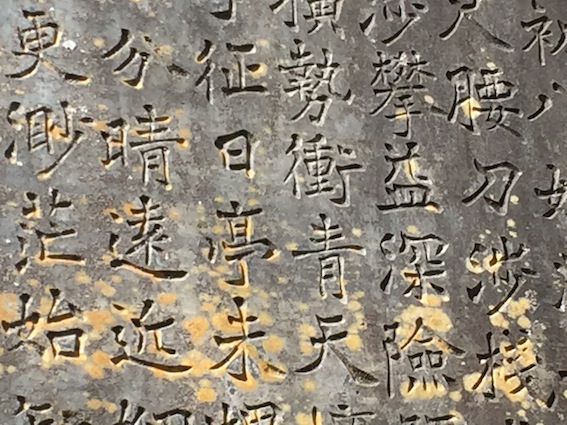 八
腰刀涉棧
攀益深險
橫勢衝青天
征日亭未
分晴遠近
更渺茫始